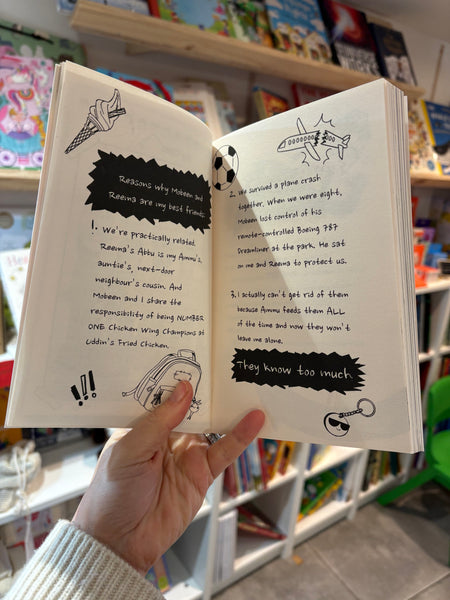 Reasons why Mobeen and
Reema are my best friends:
1. We're practically related.
Reema's Abbu is my Ammu's,
auntie's, next-door
neighbour's cousin. And
Mobeen and I share the
responsibility of being NUMBER
ONE Chicken Wing Champions at
Uddin's Fried Chicken.
2. We survived a plane crash
together. When we were eight,
Mobeen lost control of his
remote-controlled Boeing 787
Dreamliner at the park. He sat
on me and Reema to protect us.
3. I actually can't get rid of them
because Ammu feeds them ALL
of the time and now they won't
leave me alone.
They know too much.